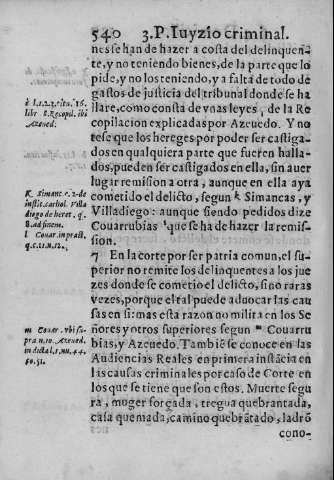 540 3. P. Iuyzio criminal.
nes se han de hazer a costa del delinquen-
te, y no teniendo bienes, de la parte que lo
pide, y no los teniendo, y a falta de todo de
gastos de justicia del tribunal donde se ha
llare, como consta de vnas leyes, de la Re
copilacion explicadas por Azeuedo. Y no
tese que los hereges por poder ser castiga-
dos en qualquiera parte que fueren halla-
dos, pueden ser castigados en ella, sin auer
lugar remision a otra, aunque en ella aya
cometido el delicto, segun k Simancas, y
Villadiego: aunque siendo pedidos dize
Couarrubias l que se ha de hazer la remis-
sion.
7 En la corte por ser patria comun, el su-
perior no remite los delinquentes a los jue
zes donde se cometio el delicto, sino raras
vezes, porque el tal puede aduocar las cau
sas en si: mas esta razon no milita en los Se
ñores y otros superiores segun m Couarru-
bias, y Azeuedo. Tambiē se conoce en las
Audiencias Reales en primera instācia en
las causas criminales por caso de Corte en
los que se tiene que son estos. Muerte segu
ra, muger forçada, tregua quebrantada,
casa quemada, camino quebrātado, ladrō
cono-
libr 8. Recopil. ibi
Azeued.
K Simanc. c. 2. de
instit. cathol. Villa
diego de heret. q.
8. ad finem.
l Couar. in pract.
q. c. 11. n. 12.
m Couar. vbi su-
pra n. 10. Azeued.